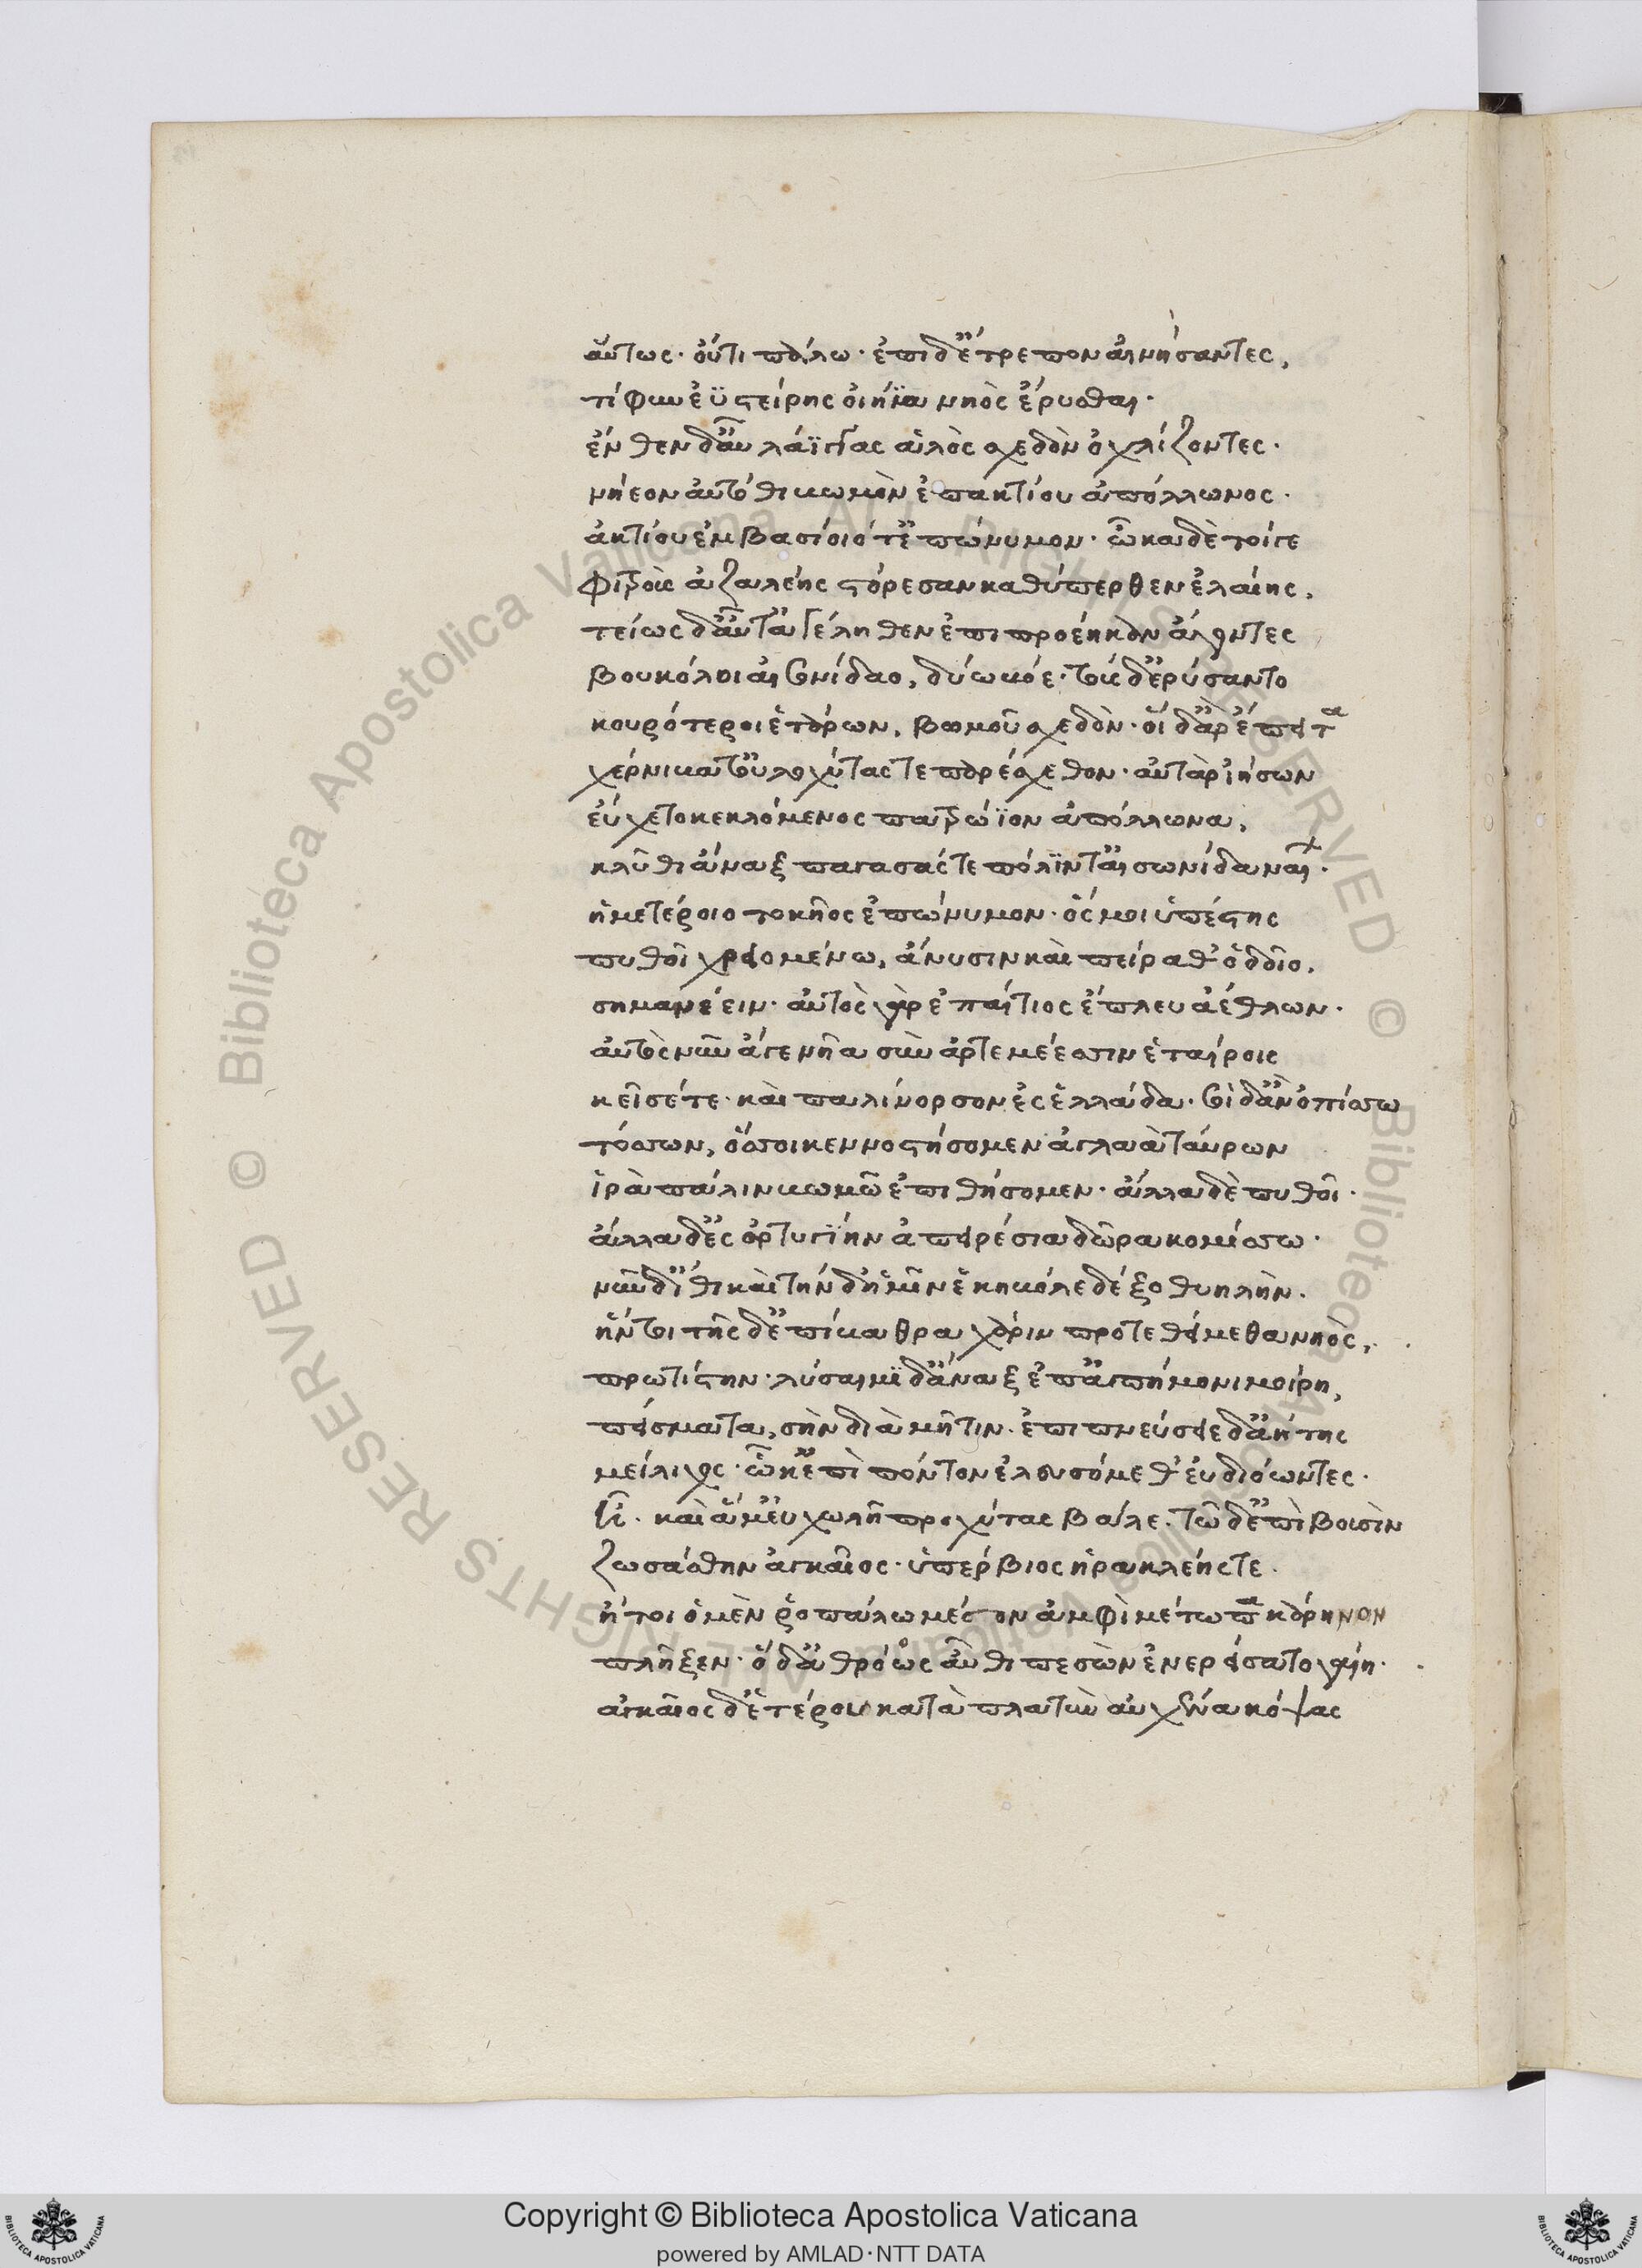 αὔτως· οὔτι πάλω· ἐπι δ' ἔτρεπον αἰνήσαντες,
τίφυν ἐϋστείρης οἰήϊα νηὸς ἔρυσθαι·
ἔνθεν δ' αὖ λάϊγγας ἁλὸς σχεδὸν ὀχλίζοντες·
νήεον αὐτόθι βωμὸν ἐπακτίου ἀπόλλωνος·
ἀκτίου ἐμβασίοιό τ' ἐπώνυμον· ὦκα δὲ τοίγε
φιτροὺς ἀζαλέης στόρεσαν καθύπερθεν ἐλαίης,
τείως δ' αὖτ' ἀγέληθεν ἐπιπροέηκαν ἄγοντες
βουκόλοι αἰσονίδαο, δύω βόε· τοὺς δ' ἐρύσαντο
κουρότεροι ἑτάρων, βωμοῦ σχεδὸν· οἱ δ' ἄρ' ἔπειτα
χέρνιβα τ' οὐλοχύτας τε παρέσχεθον· αὐτὰρ ἰήσων
εὔχετο κεκλόμενος πατρώϊον ἀπόλλωνα,
κλῦθι ἄναξ παγασάς τε πόλϊν τ' αἰσωνίδα ναίων·
ἡμετέροιο τοκῆος ἐπώνυμον· ὅς μοι ὑπέστης
πυθοῖ χρειομένω, ἄνυσιν καὶ πείραθ' ὁδοῖο,
σημανέειν· αὐτὸς γὰρ ἐπαίτιος ἔπλευ ἀέθλων·
αὐτὸς νῦν ἄγε νῆα σὺν ἀρτεμέεσσιν ἑταίροις
κεῖσέ τε· καὶ παλίνορσον ἐς ἑλλάδα· σοὶ δ' ἂν ὀπίσσω
τόσσων, ὅσσοι κεν νοστήσομεν ἀγλαὰ ταύρων
ἱρὰ πάλιν βωμῶ ἐπιθήσομεν· ἄλλα δὲ πυθοῖ·
ἄλλα δ' ἐς ὀρτυγίην ἀπειρέσια δῶρα κομίσσω·
νῦν δ' ἴθι καὶ τήν δ' ἡμῖν ἑκηβόλε δέξο θυηλὴν·
ἥν τοι τῆς δ' ἐπίβαθρα χάριν προτεθείμεθα νηὸς,
πρωτίστην· λύσαιμϊ δ' ἄναξ ἐπ' ἀπήμονι μοίρη,
πείσματα, σὴν διὰ μῆτιν· ἐπιπνεύσειε δ' ἀήτης
μείλιχος· ὧ κ' ἐπὶ πόντον ἐλευσόμεθ' εὐδιόωντες·
ἦ· καὶ ἅμ' εὐχωλῆ προχύτας βάλε· τὼ δ' ἐπὶ βουσὶν
ζωσάσθην ἀγκαῖος· ὑπέρβιος ἡρακλέης τε·
ἤτοι ὁ μὲν ῥοπάλω μέσσον ἀμφὶ μέτωπα κάρηνον
πλῆξεν· ὁ δ' ἀθρόως αὖθι πεσὼν ἐνερείσατο γαίη·
ἀγκαῖος δ' ἑτέρου κατὰ πλατὺν αὐχένα κόψας
Copyright © Biblioteca Apostolica Vaticana
powered by AMLAD·NTT DATA